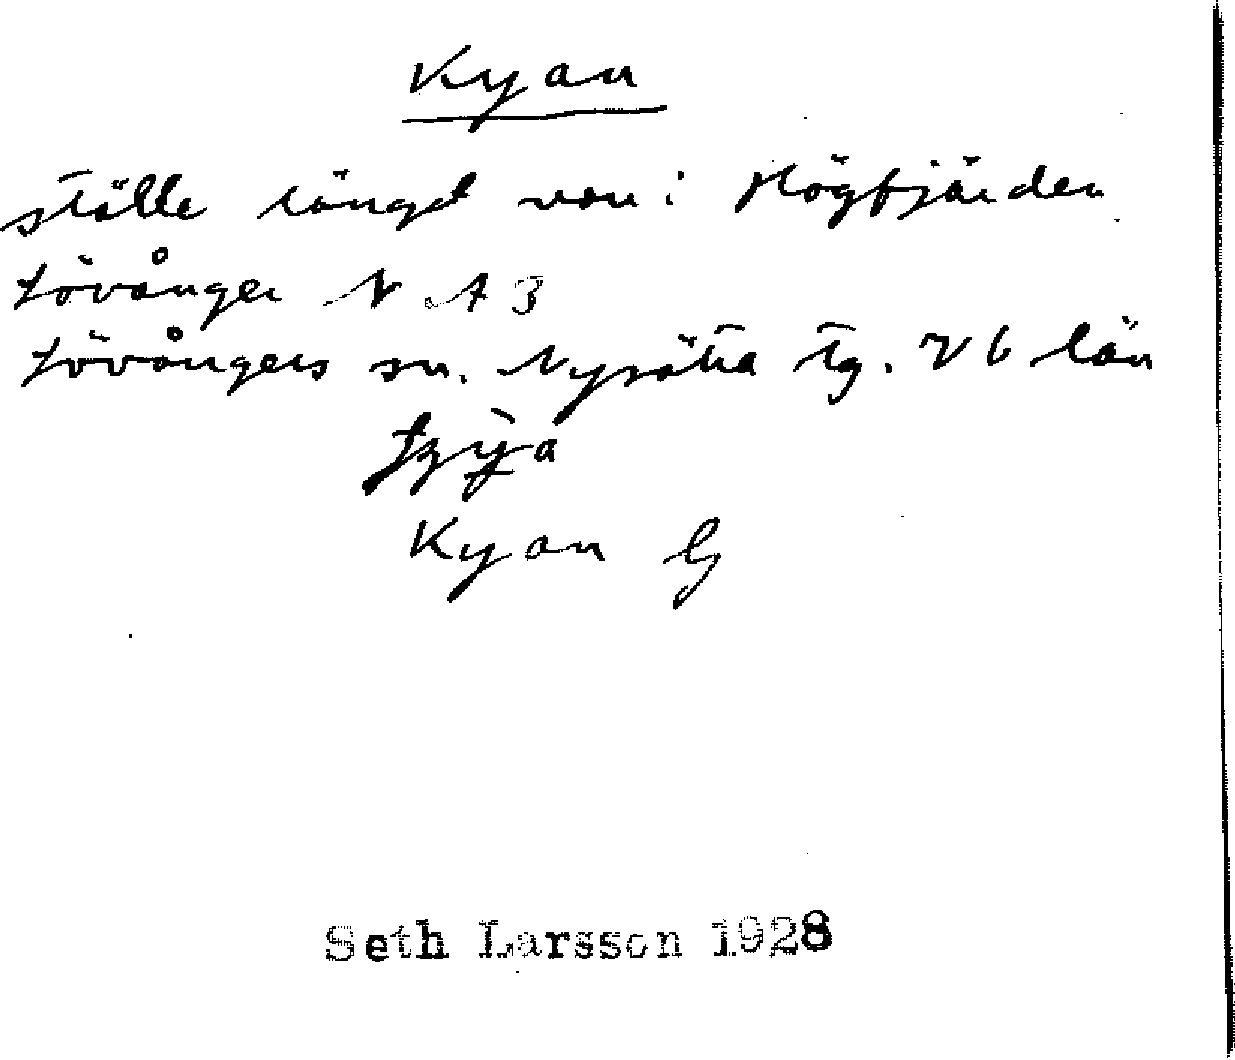 Kyan
ställe längst von i Högfjärden
Lövånger N A 3
Lövångers sn. Nysätra tg. Vb län
Kyan G
Seth Larsson 1928